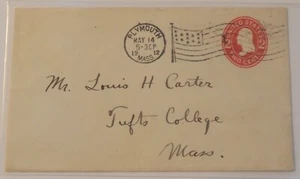 PLYMOUTH
MAY 14
5-30P
1912
MASS.
UNITED STATES
Mr. Louis H Carter
Tufts College
Mass.